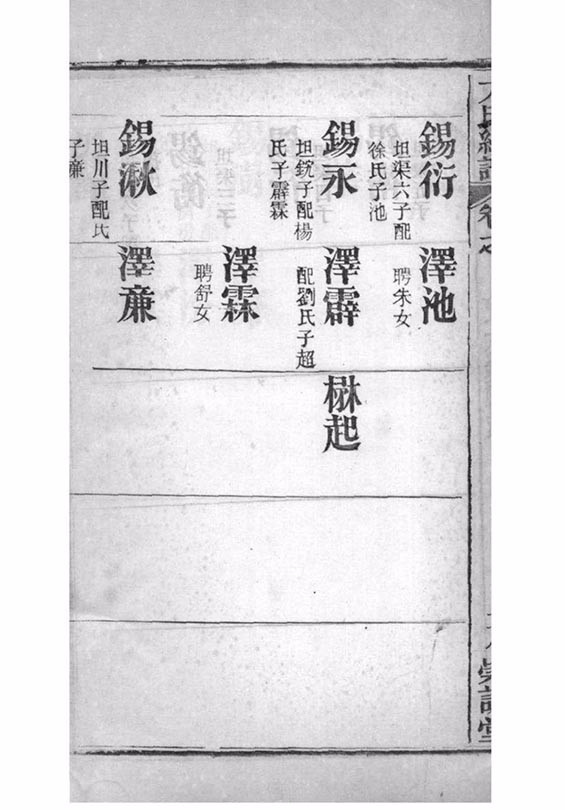 錫衍
坦渠六子配
徐氏子池
錫永
坦銳子配楊
氏子霹霖
錫湫
坦川子配氏
子亷
澤池
聘朱女
澤霹
配劉氏子超
澤霖
聘舒女
澤亷
楙起